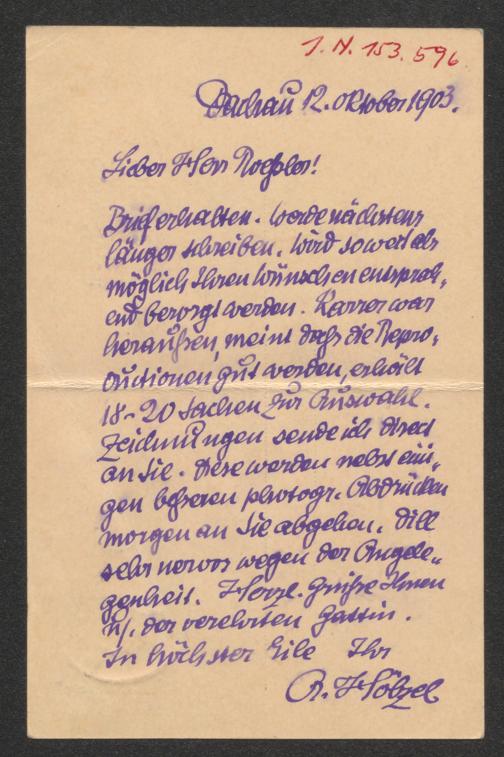 J. N. 153.596
Dachau 12. Oktober 1903.
Lieber Herr Roeßler!
Brief erhalten. Werde nächstens
länger schreiben. Wird soweit als
möglich Ihren Wünschen entsprech„
end besorgt werden. Karrer war
heraußen, meint daß die Repro„
ductionen gut werden, erhält
18-20 Sachen zur Auswahl.
Zeichnungen sende ich direct
an Sie. Diese werden nebst eini„
gen besseren photogr. Abdrücken
morgen an Sie abgehen. Dill
sehr nervos wegen der Angele„
genheit. Herzl. Grüße Ihnen
u. der verehrten Gattin.
In höchster Eile Ihr
A. Hölzel